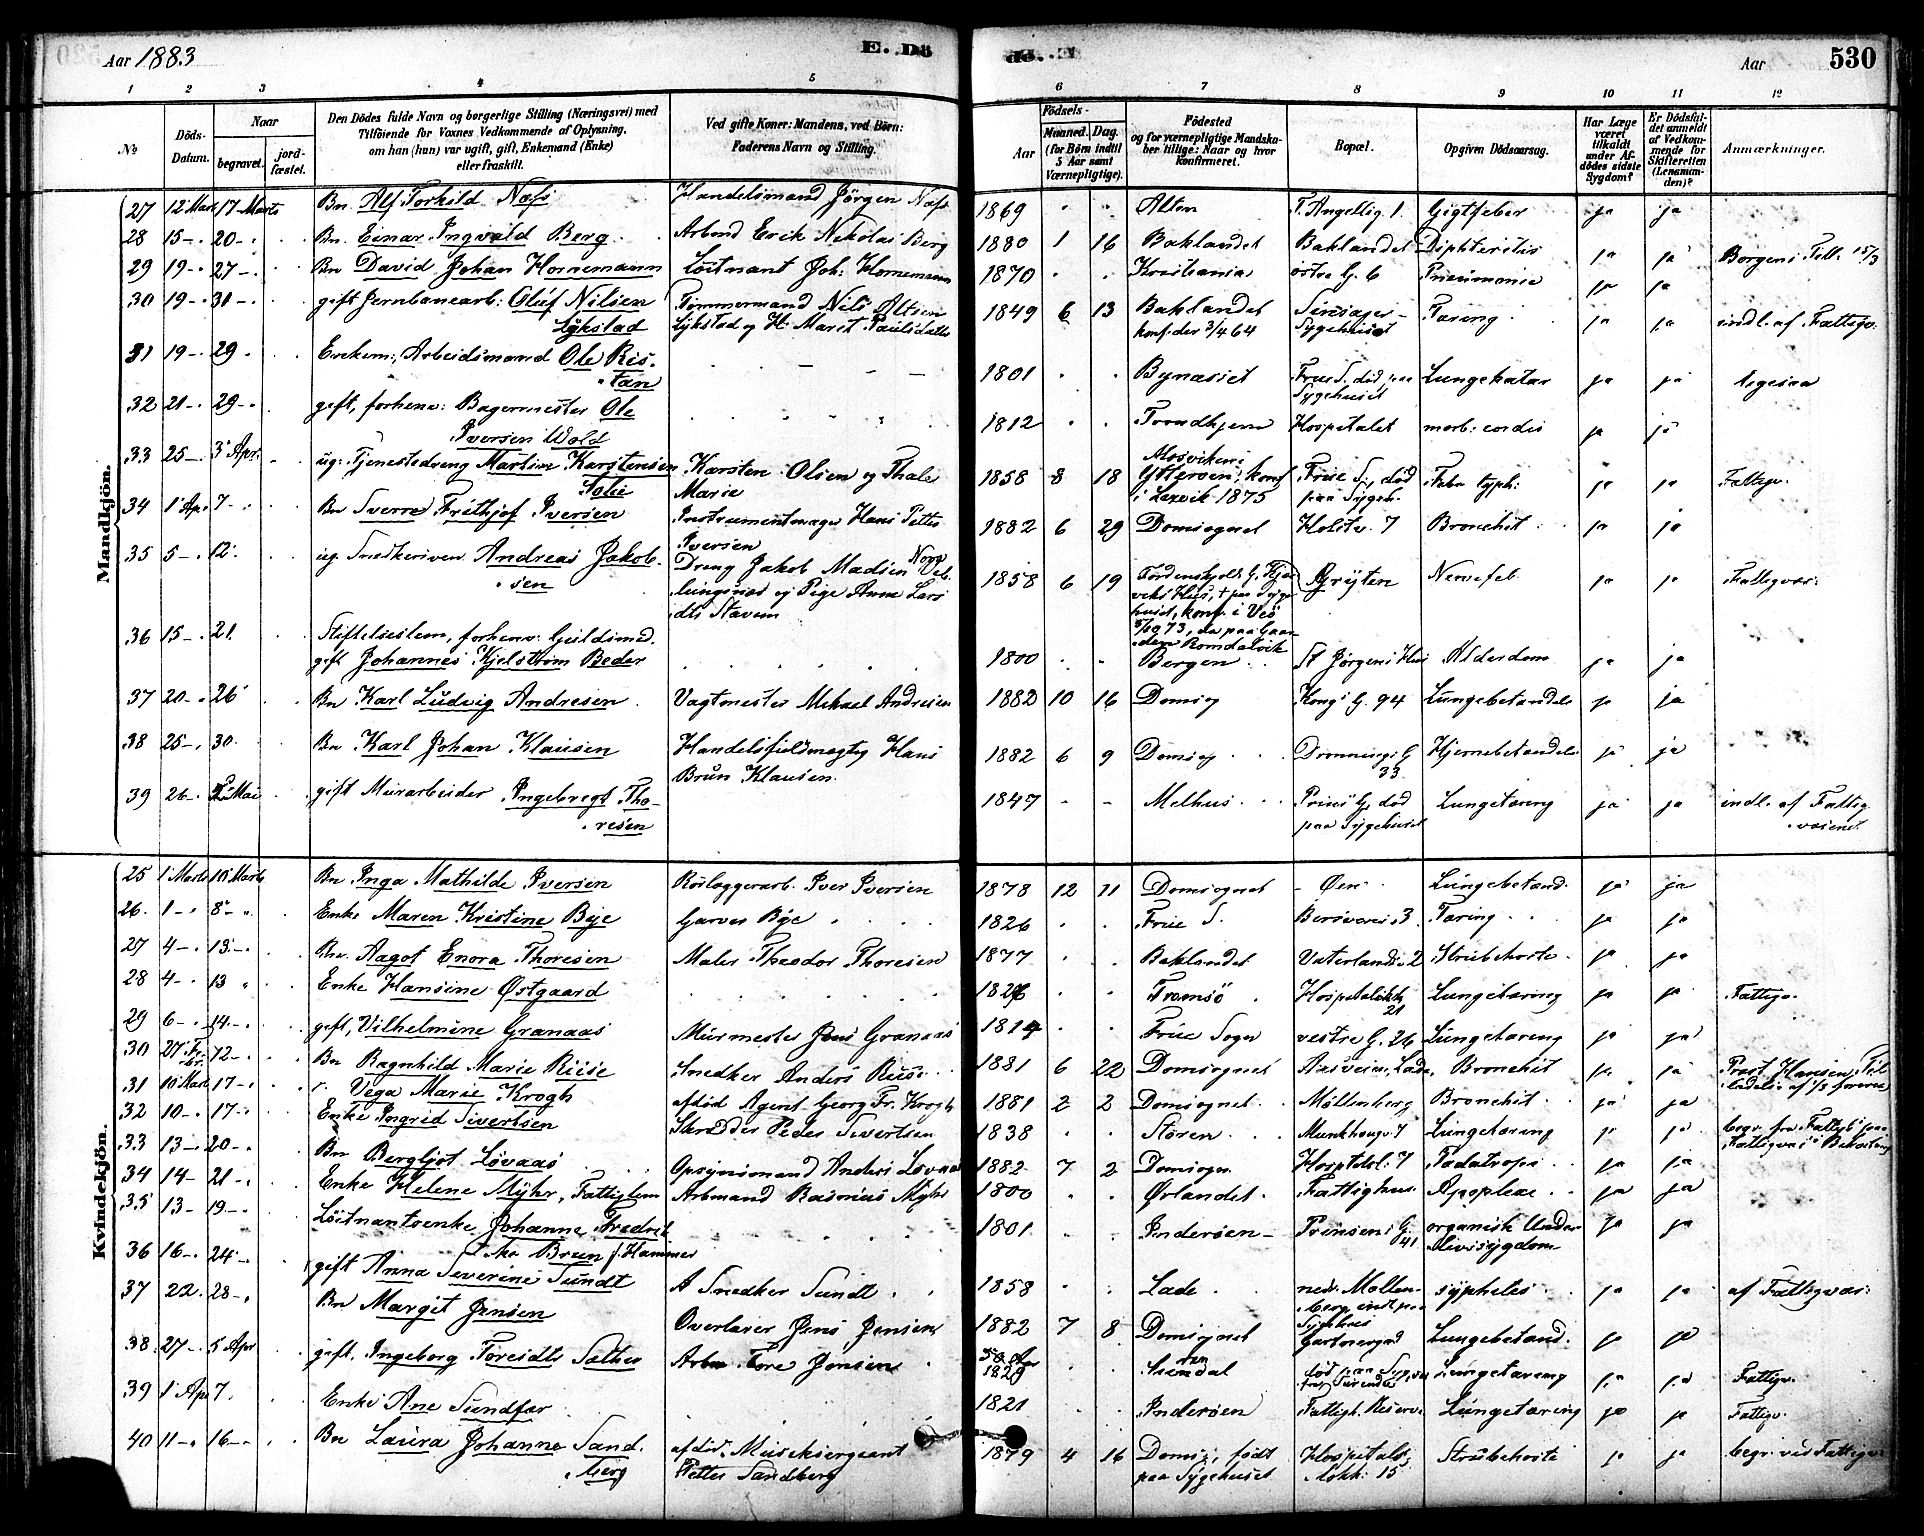 Aar 1883 E. Dö
de. E. Aar 530
1 2 3 4 5 6 7 8 9 10 11 12
No Döds-Datum. Naar begravet. jord-fæstet. Den Dödes fulde Navn og borgerlige Stilling (Næringsvei) med Tilföiende for Voxnes Vedkommende af Oplysning, om han (hun) var ugift, gift, Enkemand (Enke) eller fraskilt. Ved gifte Koner: Mandens, ved Börn: Faderens Navn og Stilling. Födsels- Aar Maaned. Dag. (for Börn indtil 5 Aar samt Værnepligtige). Födested og for værnepligtige Mandskaber tillige: Naar og hvor konfirmeret. Bopæl. Opgiven Dödsaarsag. Har Læge været tilkaldt under Afdödes sidste Sygdom? Er Dödsfaldet anmeldt af Vedkommende for Skifteretten (Lensmanden)? Anmærkninger.
Mandkjön.
27 12 Mart 17 Marts Bn. Alf Torkild Næss Handelsmand Jörgen Næss 1869 Alten Gigtfeber ja ja
28 15 20 Bn. Einar Ingvald Berg Arbmd Erik Nikolai Berg 1880 1 16 Baklandet Baklandet Diphteritis ja ja Borgens Till. 15/3
29 19 27 Bn David Johan Hornemann Löitnant Joh: Hornemann 1870 Kristiania östre G. 6 Pneumonia ja ja
30 19 31 gift Jernbanearb: Oluf Nilsen Tömmermand Nils Olsen 1849 6 13 Baklandet Tæring ja ja indl. af Fattigv.
Lykstad Lykstad og H: Maret Paulsdatter konf. der 3/4 64 Sygehuset
31 19 29 Enkem: Arbeidsmand Ole Ris- 1801 Bynæsset Frue S. död paa Lungekatar ja ja
tan Sygehuset
32 21 29 gift, forhenv: Bagermester Ole 1812 Trondhjem Hospitalet morb: cordis ja ja
Iversen Wold
33 25 3 Apr. ug: Tjenestedreng Martin Karstensen Karsten Olsen og Thale 1858 8 18 Mosviken i Ytteröen, konf. Frue S, död Febr. typh: ja ja Fattigv.
Marie i Lexvik 1875 paa Sygeh.
34 1 Apr 7 Bn Sverre Frithjof Iversen Instrumentmager Hans Petter 1882 6 29 Domsognet Holstv. 7 Bronchit ja ja
Iversen
35 5 12 ug. Snedkersven Andreas Jakob- Dreng Jakob Madsen 1858 6 19 Gryten Nervefeb. ja ja Fattigvæs:
sen og Pige Anne Lars
dtr Stavem
36 15 21 Stiftelseslem, forhenv. Guldsmed.
gift Johannes Kjelström Beder 1800 Bergen St Jörgens Hus Alderdom ja ja
37 20 26 Bn Karl Ludvig Andresen Vagtmester Mikael Andresen 1882 10 16 Domsog Kong G. 94 Lungebetændelse ja ja
38 25 30 Bn Karl Johan Klausen Handelsfuldmægtig Hans 1882 6 9 Domsog Dronningsi G Hjernebetændelse ja ja
Brun Klausen 33
39 26 2 Mai gift Murarbeider Ingebregt Tho- 1847 Melhus Prins G, död Lungetæring ja ja indl. af Fattig
resen paa Sygehuset væsenet
Kvindekjön.
25 1 Marts 10 Marts Bn Inga Mathilde Iversen Iver Iversen 1878 12 11 Domsognet Öen Lungebetænd. ja ja
26. 1 8 Enke Maren Kristine Bye Garver Bye 1826 Frue S. 3 Tæring ja ja
27 4 13 Bn. Aagot Enora Thoresen Maler Theodor Thoresen 1877 Baklandet Vaterlands 2 Strubehoste ja ja
28 4 13 Enke Hansine Östgaard Tromsö Hospitalslökk. 21 Lungetæring ja ja Fattigv.
29 6 14 gift, Vilhelmine Granaas Murmester Jens Granaas 1814 Frue Sogn vestre G. 26 Lungetæring ja ja
30 27 Febr. 12 Bn Ragnhild Marie Riise Snedker Anders Riise 1881 6 22 Domsognet Bronchit ja ja Prost Hansens Til
31 10 Mart 17 Vega Marie Krogh afdöd Agent Georg Fr. Krogh 1881 2 2 Domsognet Möllenberg Bronchit ja ja
32 10 17 Enke Ingrid Sivertsen Skrædder Peder Sivertsen 1838 Stören Munkhaugv. 7 Lungetæring ja ja begr. fra
33 13 20 Bn Bergljot Lövaas Opsynsmand Anders Lövaas 1882 7 2 Domsogn. Hospitalsl. 7 ja ja
34 14 21 Enke Helene Myhr, Fattiglem Arbmand Rasmus Myhr 1800 Örlandet Fattighus Apoplexi ja ja
35 13 19 Löitnantsenke Johanne Fredrik- 1801 Inderöen Prinsens G. 41 organisk Under- ja ja
ke Brun f. Hammer livssygdom
36 16 24 gift Anna Severine Sundt A Snedker Sundt 1858 Lade nedr. Mollenberg syphilis ja ja af Fattigvæs:
Sygehus
37 22 28 Bn Margit Jensen Overlærer Jens Jensen 1882 7 8 Domsognet Lungebetænd. ja ja
38 27 5 Apr gift. Ingeborg Toresdtr Sæther Arbm Tore Jonsen 1829 Lungetæring ja ja Fattigv.
39 1 Apr 7 Enke Ane Sundfær 1821 Inderöen Fattigh. Lungetæring ja ja Fattigv.
40 11 16 Bn Laura Johanne Sand- afdöd. Musiksergeant 1879 4 16 Domsog, födt Hospitals Strubehoste ja ja begr. ved Fattigv.
berg Petter Sandberg paa Sygehuset lökk: 15